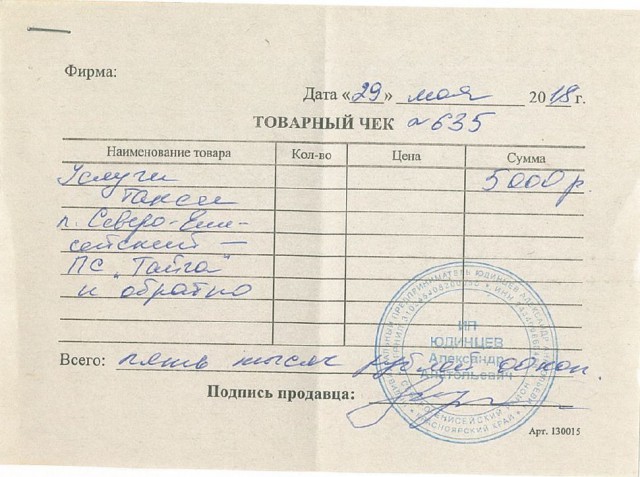 Фирма:
Дата «29» мая 2018 г.
ТОВАРНЫЙ ЧЕК № 635
Наименование товара Кол-во Цена Сумма
Услуги 5000 р.
такси
п. Северо-Ени-
сейский —
ПС "Тайга"
и обратно
Всего: пять тысяч рублей 00 коп.
Подпись продавца:
ИП
ЮДИНЦЕВ
Александр
Анатольевич
СЕВЕРО-ЕНИСЕЙСКИЙ РАЙОН
КРАСНОЯРСКИЙ КРАЙ
Арт. 130015